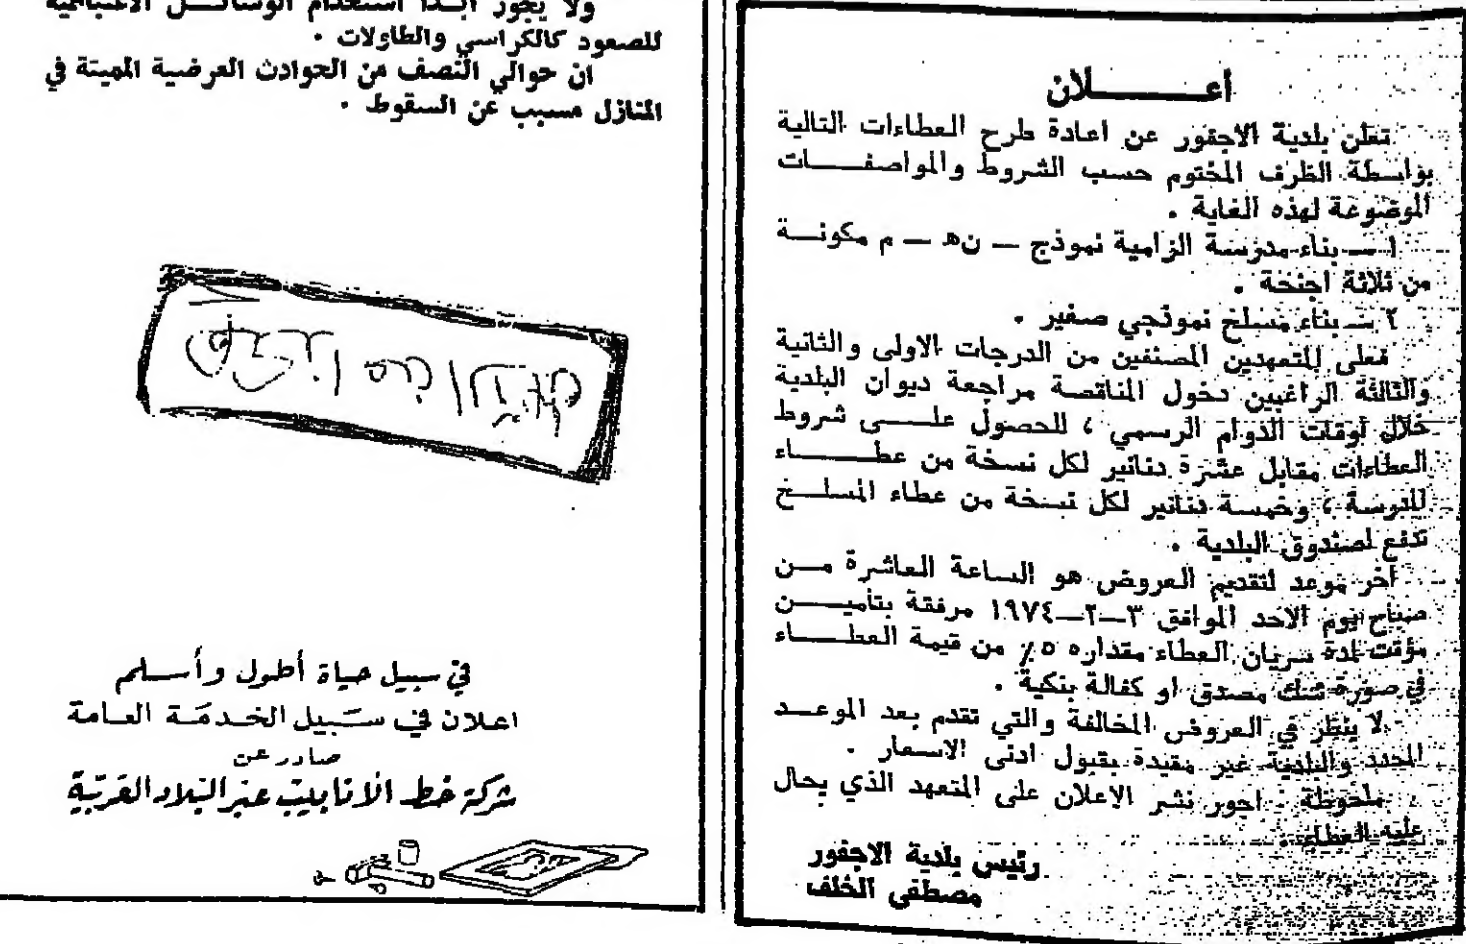 اعــــــــلان
تعلن بلدية الاجفور عن اعادة طرح العطاءات التالية
بواسطة الظرف المختوم حسب الشروط والمواصفـــــات
الموضوعة لهذه الغاية .
١ — بناء مدرسة الزامية نموذج — ن٥ — م مكونـــة
من ثلاثة اجنحة .
٢ — بناء مسلخ نموذجي صغير .
فعلى المتعهدين المصنفين من الدرجات الاولى والثانية
والثالثة الراغبين دخول المناقصة مراجعة ديوان البلدية
خلال اوقات الدوام الرسمي ، للحصول علـــــى شروط
العطاءات مقابل عشرة دنانير لكل نسخة من عطـــــــاء
المدرسة ، وخمسة دنانير لكل نسخة من عطاء المسلـــخ
تدفع لصندوق البلدية .
آخر موعد لتقديم العروض هو الساعة العاشرة مـــن
صباح يوم الاحد الموافق ٣—٢—١٩٧٤ مرفقة بتأميـــــن
مؤقت لمدة سريان العطاء مقداره ٥٪ من قيمة العطـــــاء
في صورة شك مصدق او كفالة بنكية .
لا ينظر في العروض المخالفة والتي تقدم بعد الموعـــد
المحدد والبلدية غير مقيدة بقبول ادنى الاسعار .
ملحوظة - اجور نشر الاعلان على المتعهد الذي يحال
عليه العطاء .
رئيس بلدية الاجفور
مصطفى الخلف
ولا يجوز ابـــدا استخدام الوسائـــل
للصعود كالكراسي والطاولات .
ان حوالي النصف من الحوادث العرضية المميتة في
المنازل مسبب عن السقوط .
في سبيل حياة أطول وأسـلم
اعلان في سبيل الخدمة العامة
صادر عن
شركة خط الأنابيب عبر البلاد العربية